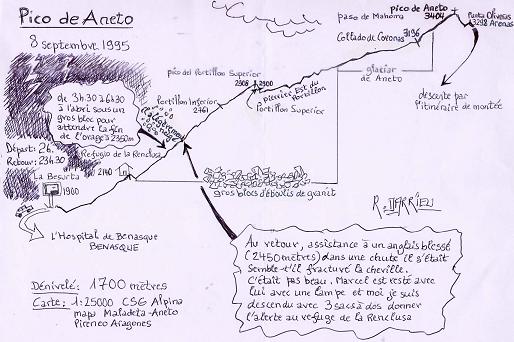 Pico de Aneto
8 septembre 1995
pico de Aneto
3404
Punta Oliveras
3298 Arenas
paso de Mahoma
3196
Collado de Coronas
glaciar
de Aneto
descente par
l'itinéraire de montée
pico del Portillon Superior
2908
2900
pierrier Est du
Portillon
Portillon Superior
Portillon Inferior
2761
de 3h30 à 6h30
à l'abri sous un
gros bloc pour
attendre la fin
de l'orage à 2350m
Départ: 2h.
Retour: 23h30
Refugio de la Renclusa
2140
La Besurta
1900
gros blocs d'éboulis de granit
L'Hospital de Benasque
BENASQUE
Dénivelé: 1700 mètres
Carte: 1:25000 CSG Alpina
mapa Maladeta-Aneto
Pireneo Aragones
Au retour, assistance à un anglais blessé
(2450 mètres) dans une chute il s'était
semble-t'il fracturé la cheville.
C'était pas beau. Marcel est resté avec
lui avec une lampe et moi je suis
descendu avec 3 sacs à dos donner
l'alerte au refuge de la Renclusa